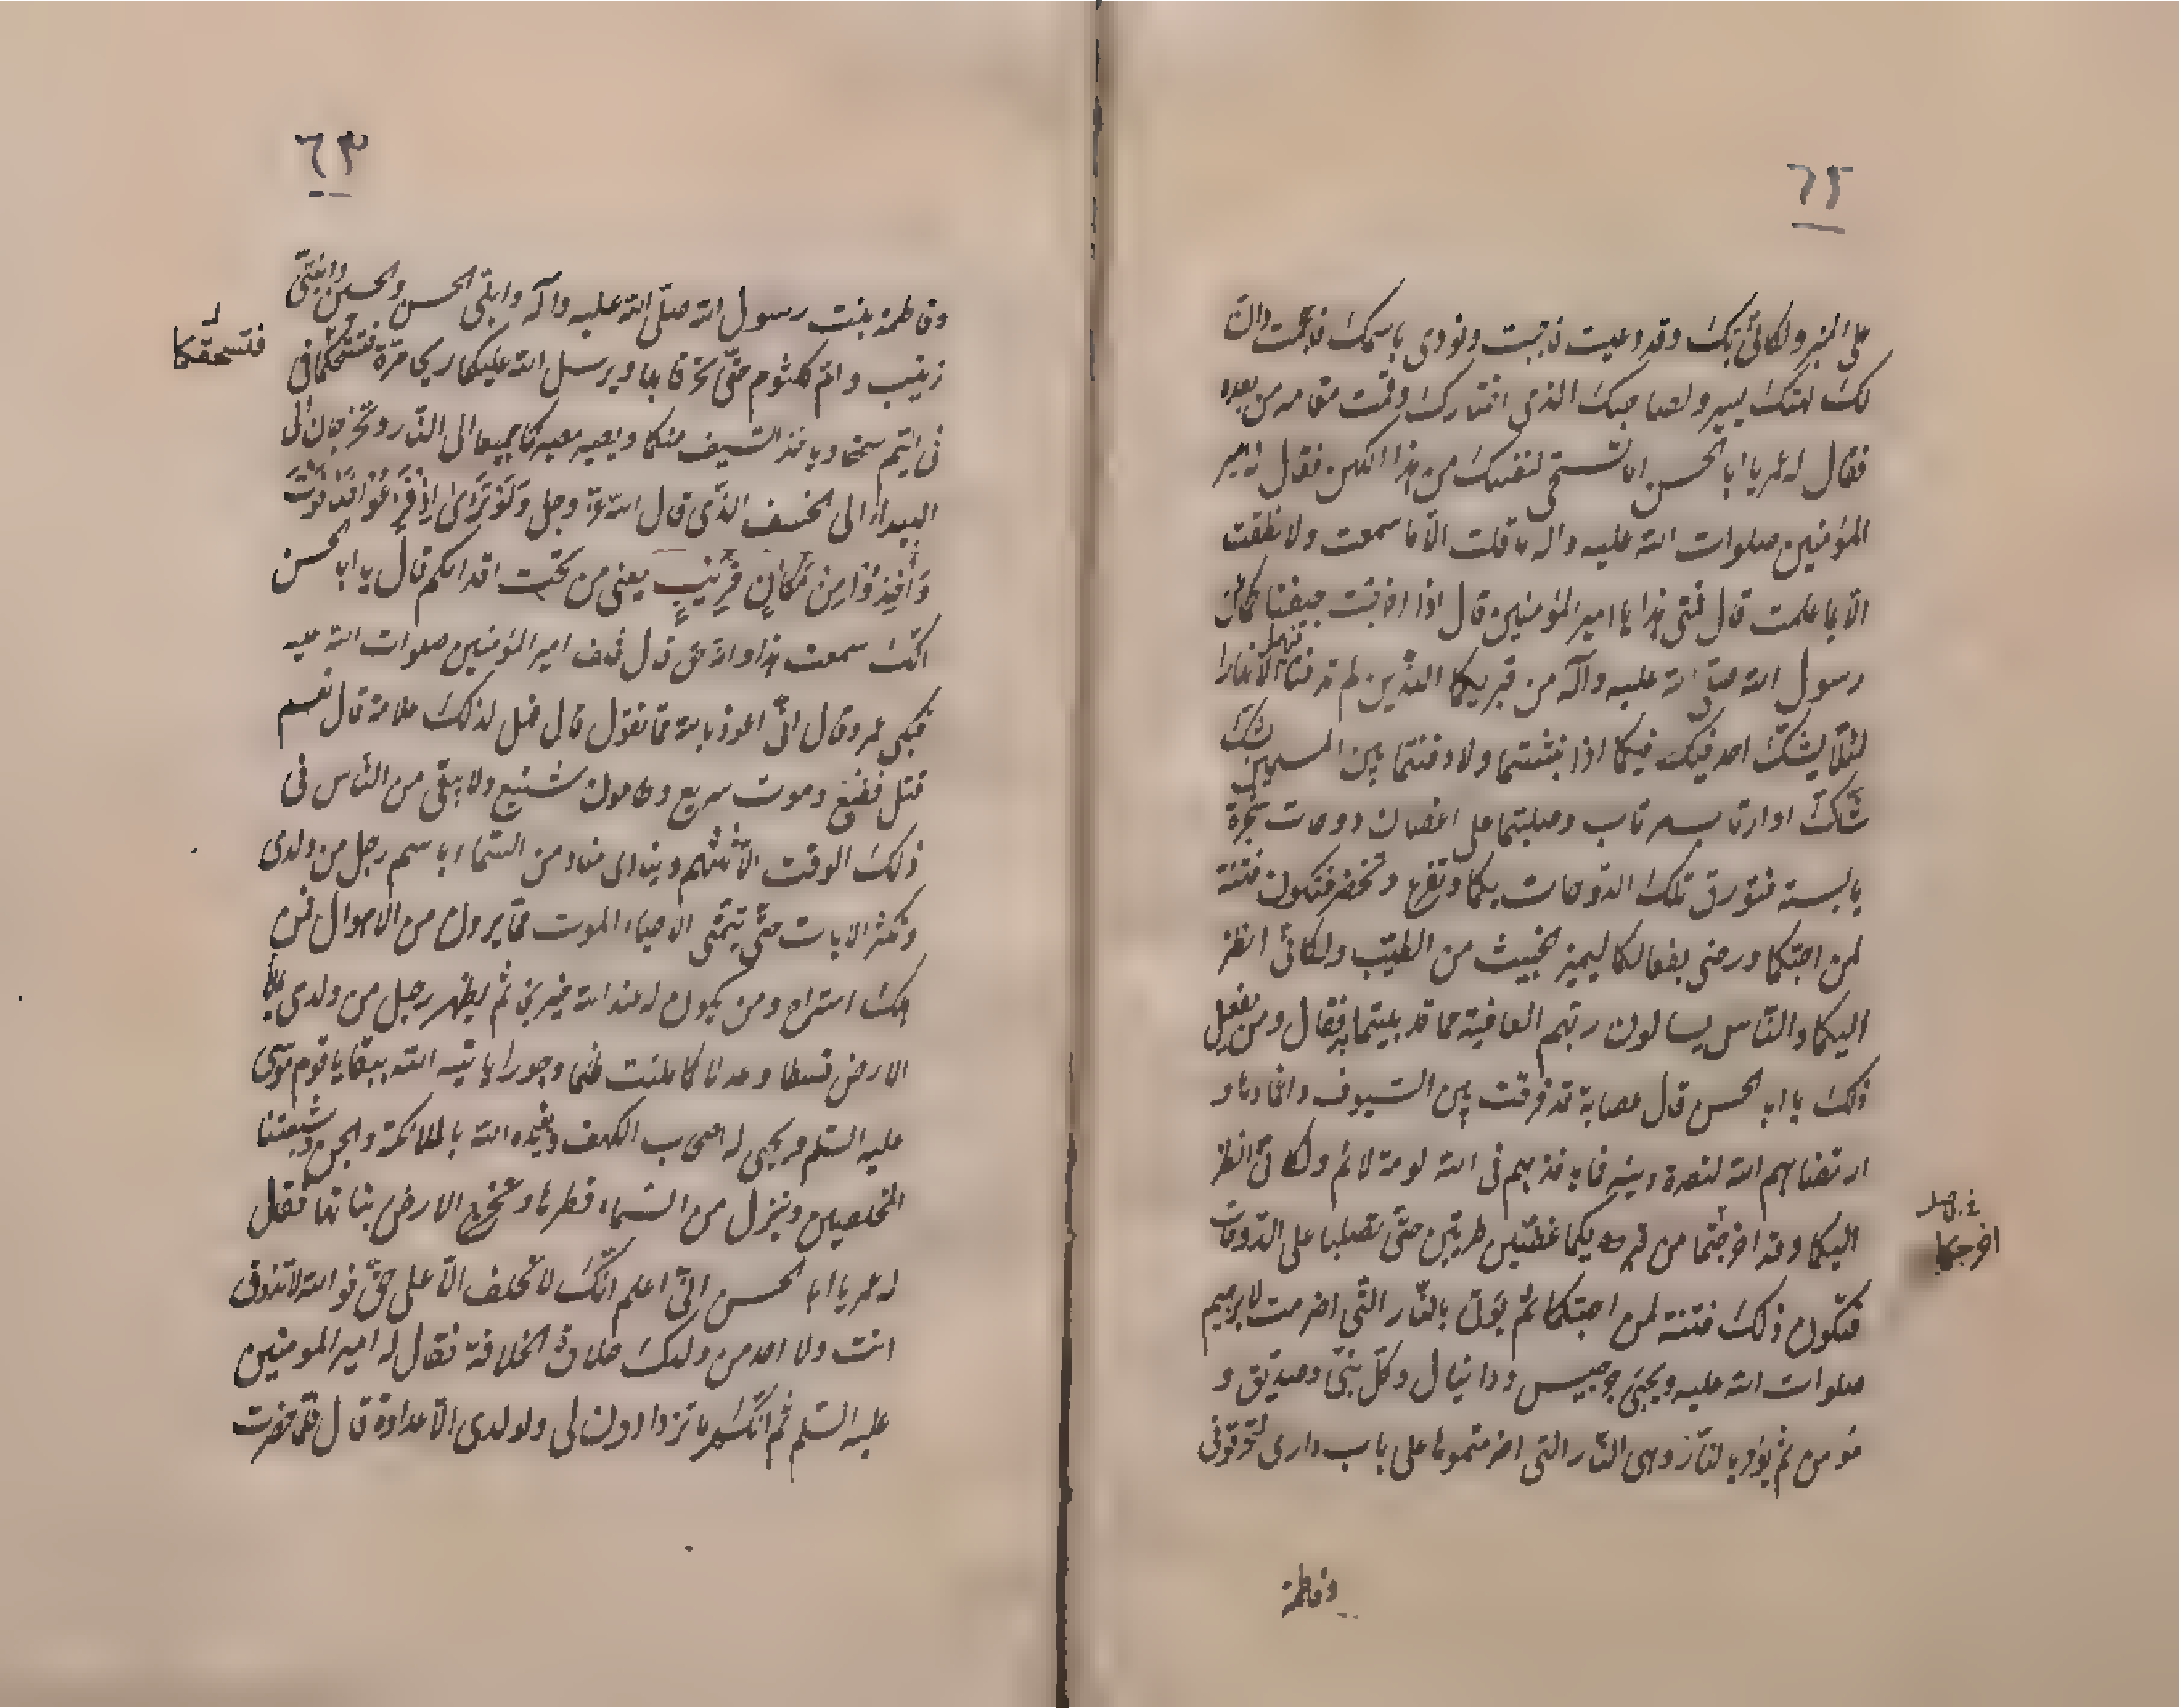 ٦٢
على المنبر ولكأنّى بك وقد دعيت فاجبت ونودى باسمك فاحجمت وانّ
لك لهتك ستر ولصاحبك الذى اختارك وقمت مقامه من بعده
فقال له عمر يا ابا الحسن اما تستحى لنفسك من هذا التكهن فقال له امير
المؤمنين صلوات الله عليه واله ما قلت الّا ما سمعت ولا نطقت
الّا بما علمت قال فمتى هذا يا امير المؤمنين قال اذا اخرجت جيفتاكما عن
رسول الله صلّى الله عليه وآله من قبريكما اللّذين لم تدفنا فيهما الّا نهارا
لئلّا يشكّ احد فيكما اذا نبشتما ولو دفنتما بين المسلمين شكّ
شكّ او ارتاب مرتاب وصلبتما على اغصان دوحات شجرة
يابسة فتورق تلك الدّوحات بكما وتفرع وتخضر فتكون فتنة
لمن احبّكما ورضى بفعالكما ليميز الخبيث من الطيّب ولكأنّى انظر
اليكما والنّاس يسالون ربّهم العافية ممّا قد بليتما به فقال ومن يفعل
ذلك يا ابا الحسن قال عصابة قد فرقت بين السّيوف واغمادها و
ارتضاهم الله لنصرة دينه فما ياخذهم فى الله لومة لائم ولكأنّى انظر
اليكما وقد اخرجتما من قبريكما غضّين طريّين حتّى تصلبا على الدّوحات
غ. ل
اخرجكما
فتكون ذلك فتنة لمن احبّكما ثمّ يؤتى بالنّار الّتى اضرمت لابرهيم
صلوات الله عليه ويحيى وجرجيس ودانيال وكلّ نبىّ وصدّيق و
مؤمن ثمّ يؤمر بالنّار وهى النّار التى اضرمتموها على باب دارى لتحرقونى
وفاطمة
٦٣
وفاطمة بنت رسول الله صلّى الله عليه وآله وابنّى الحسن والحسين وابنتىّ
زينب وامّ كلثوم حتّى تحرقا بها ويرسل الله عليكما ريحا مرّة فتنسفكما فى
فتسحقكما
فى اليمّ نسفا وياخذ السّيف منكما ويصير مصيركما جميعا الى النّار وتخرجان الى
البيداء الى الخسف الذى قال الله عزّ وجل وَلَوْ تَرَىٰ إِذْ فَزِعُوا فَلَا فَوْتَ
وَأُخِذُوا مِنْ مَكَانٍ قَرِيبٍ يعنى من تحت اقدامكم قال يا ابا الحسن
انّك سمعت هذا وانه حق قال فحلف امير المؤمنين صلوات الله عليه
فبكى عمر وقال انّى اعوذ بالله ممّا تقول قال فهل لذلك علامة قال نعم
قتل فضيع وموت سريع وطاعون شنيع ولا يبقى من النّاس فى
ذلك الوقت الّا ثلثهم وينادى مناد من السّماء باسم رجل من ولدى
وتكثر الايات حتّى يتمنّى الاحياء الموت ممّا يرون من الاهوال فمن
هلك استراح ومن يكون له عند الله خير نجى ثمّ يظهر رجل من ولدى يملا
الارض قسطا وعدلا كما ملئت ظلما وجورا ياتيه الله ببقايا قوم موسى
عليه السّلم ويحيى له اصحاب الكهف ويؤيّده الله بالملائكة والجن وشيعتنا
المخلصين وينزل من السّماء قطرها وتخرج الارض نباتها فقال
له عمر يا ابا الحسن انّى اعلم انّك لا تحلف الّا على حقّ فوالله لا تذوق
انت ولا احد من ولدك حلاوة الخلافة فقال له امير المومنين
عليه السّلم ثمّ انّكم ما تزدادون لى ولولدى الّا عداوة قال فلمّا حضرت